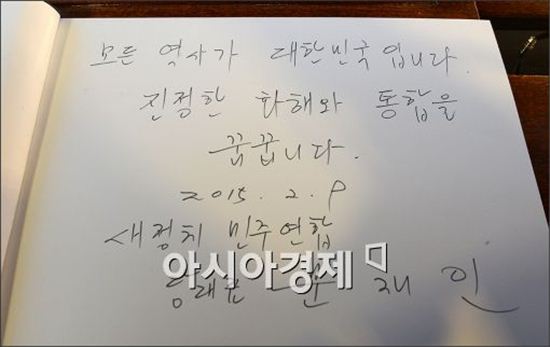 모든 역사가 대한민국입니다.
진정한 화해와 통합을
꿈꿉니다.
2015. 2. 9
새정치 민주연합
아시아경제
당대표 문 재 인